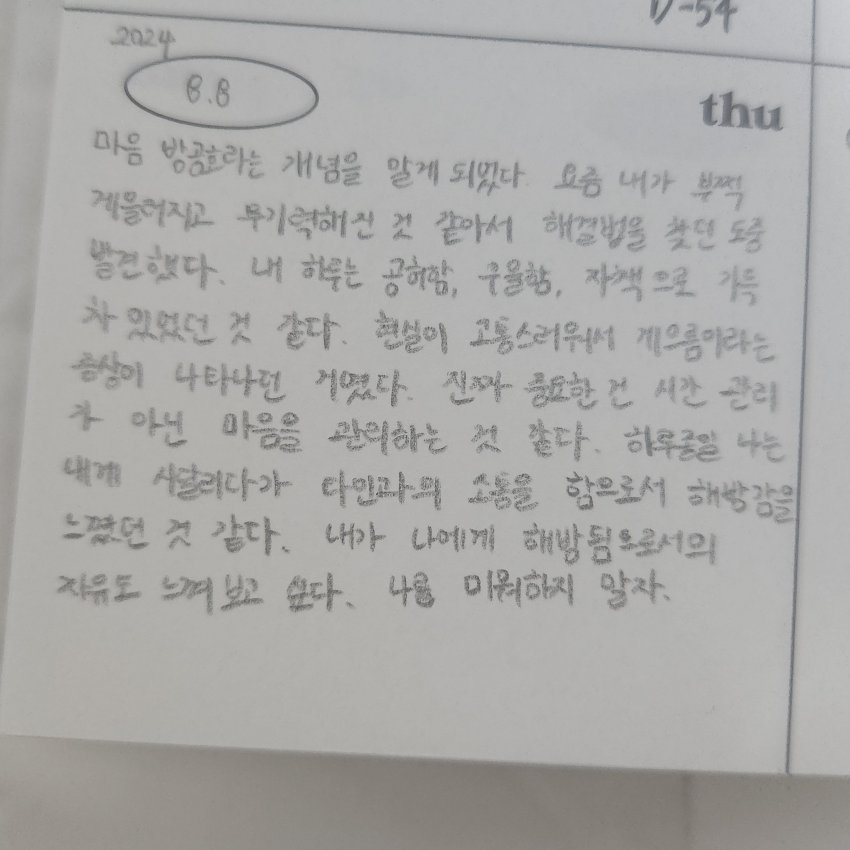 D-54
2024
8.8
thu
마음 방공호라는 개념을 알게 되었다. 요즘 내가 부쩍
게을러지고 무기력해진 것 같아서 해결법을 찾던 도중
발견했다. 내 하루는 공허함, 우울함, 자책으로 가득
차 있었던 것 같다. 현실이 고통스러워서 게으름이라는
증상이 나타나던 거였다. 진짜 중요한 건 시간 관리
가 아닌 마음을 관리하는 것 같다. 하루종일 나는
내게 시달리다가 타인과의 소통을 함으로서 해방감을
느꼈던 것 같다. 내가 나에게 해방됨으로서의
자유도 느껴보고 싶다. 나를 미워하지 말자.